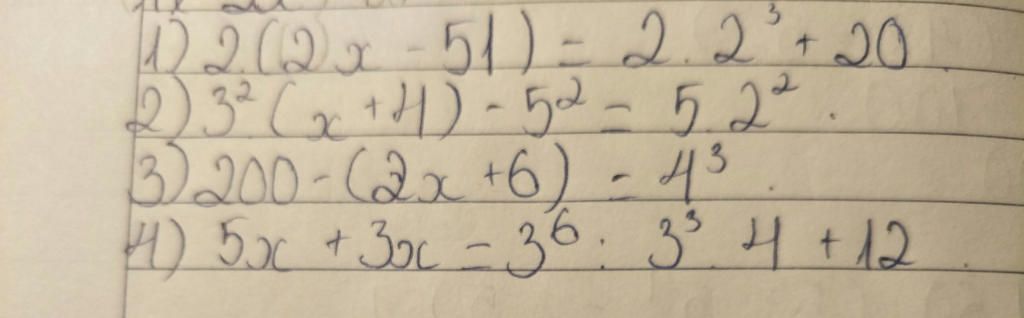 1) 2.(2x - 51) = 2.2³ + 20
2) 3²(x + 4) - 5² = 5.2².
3) 200 - (2x + 6) = 4³.
4) 5x + 3x = 3⁶ : 3³.4 + 12